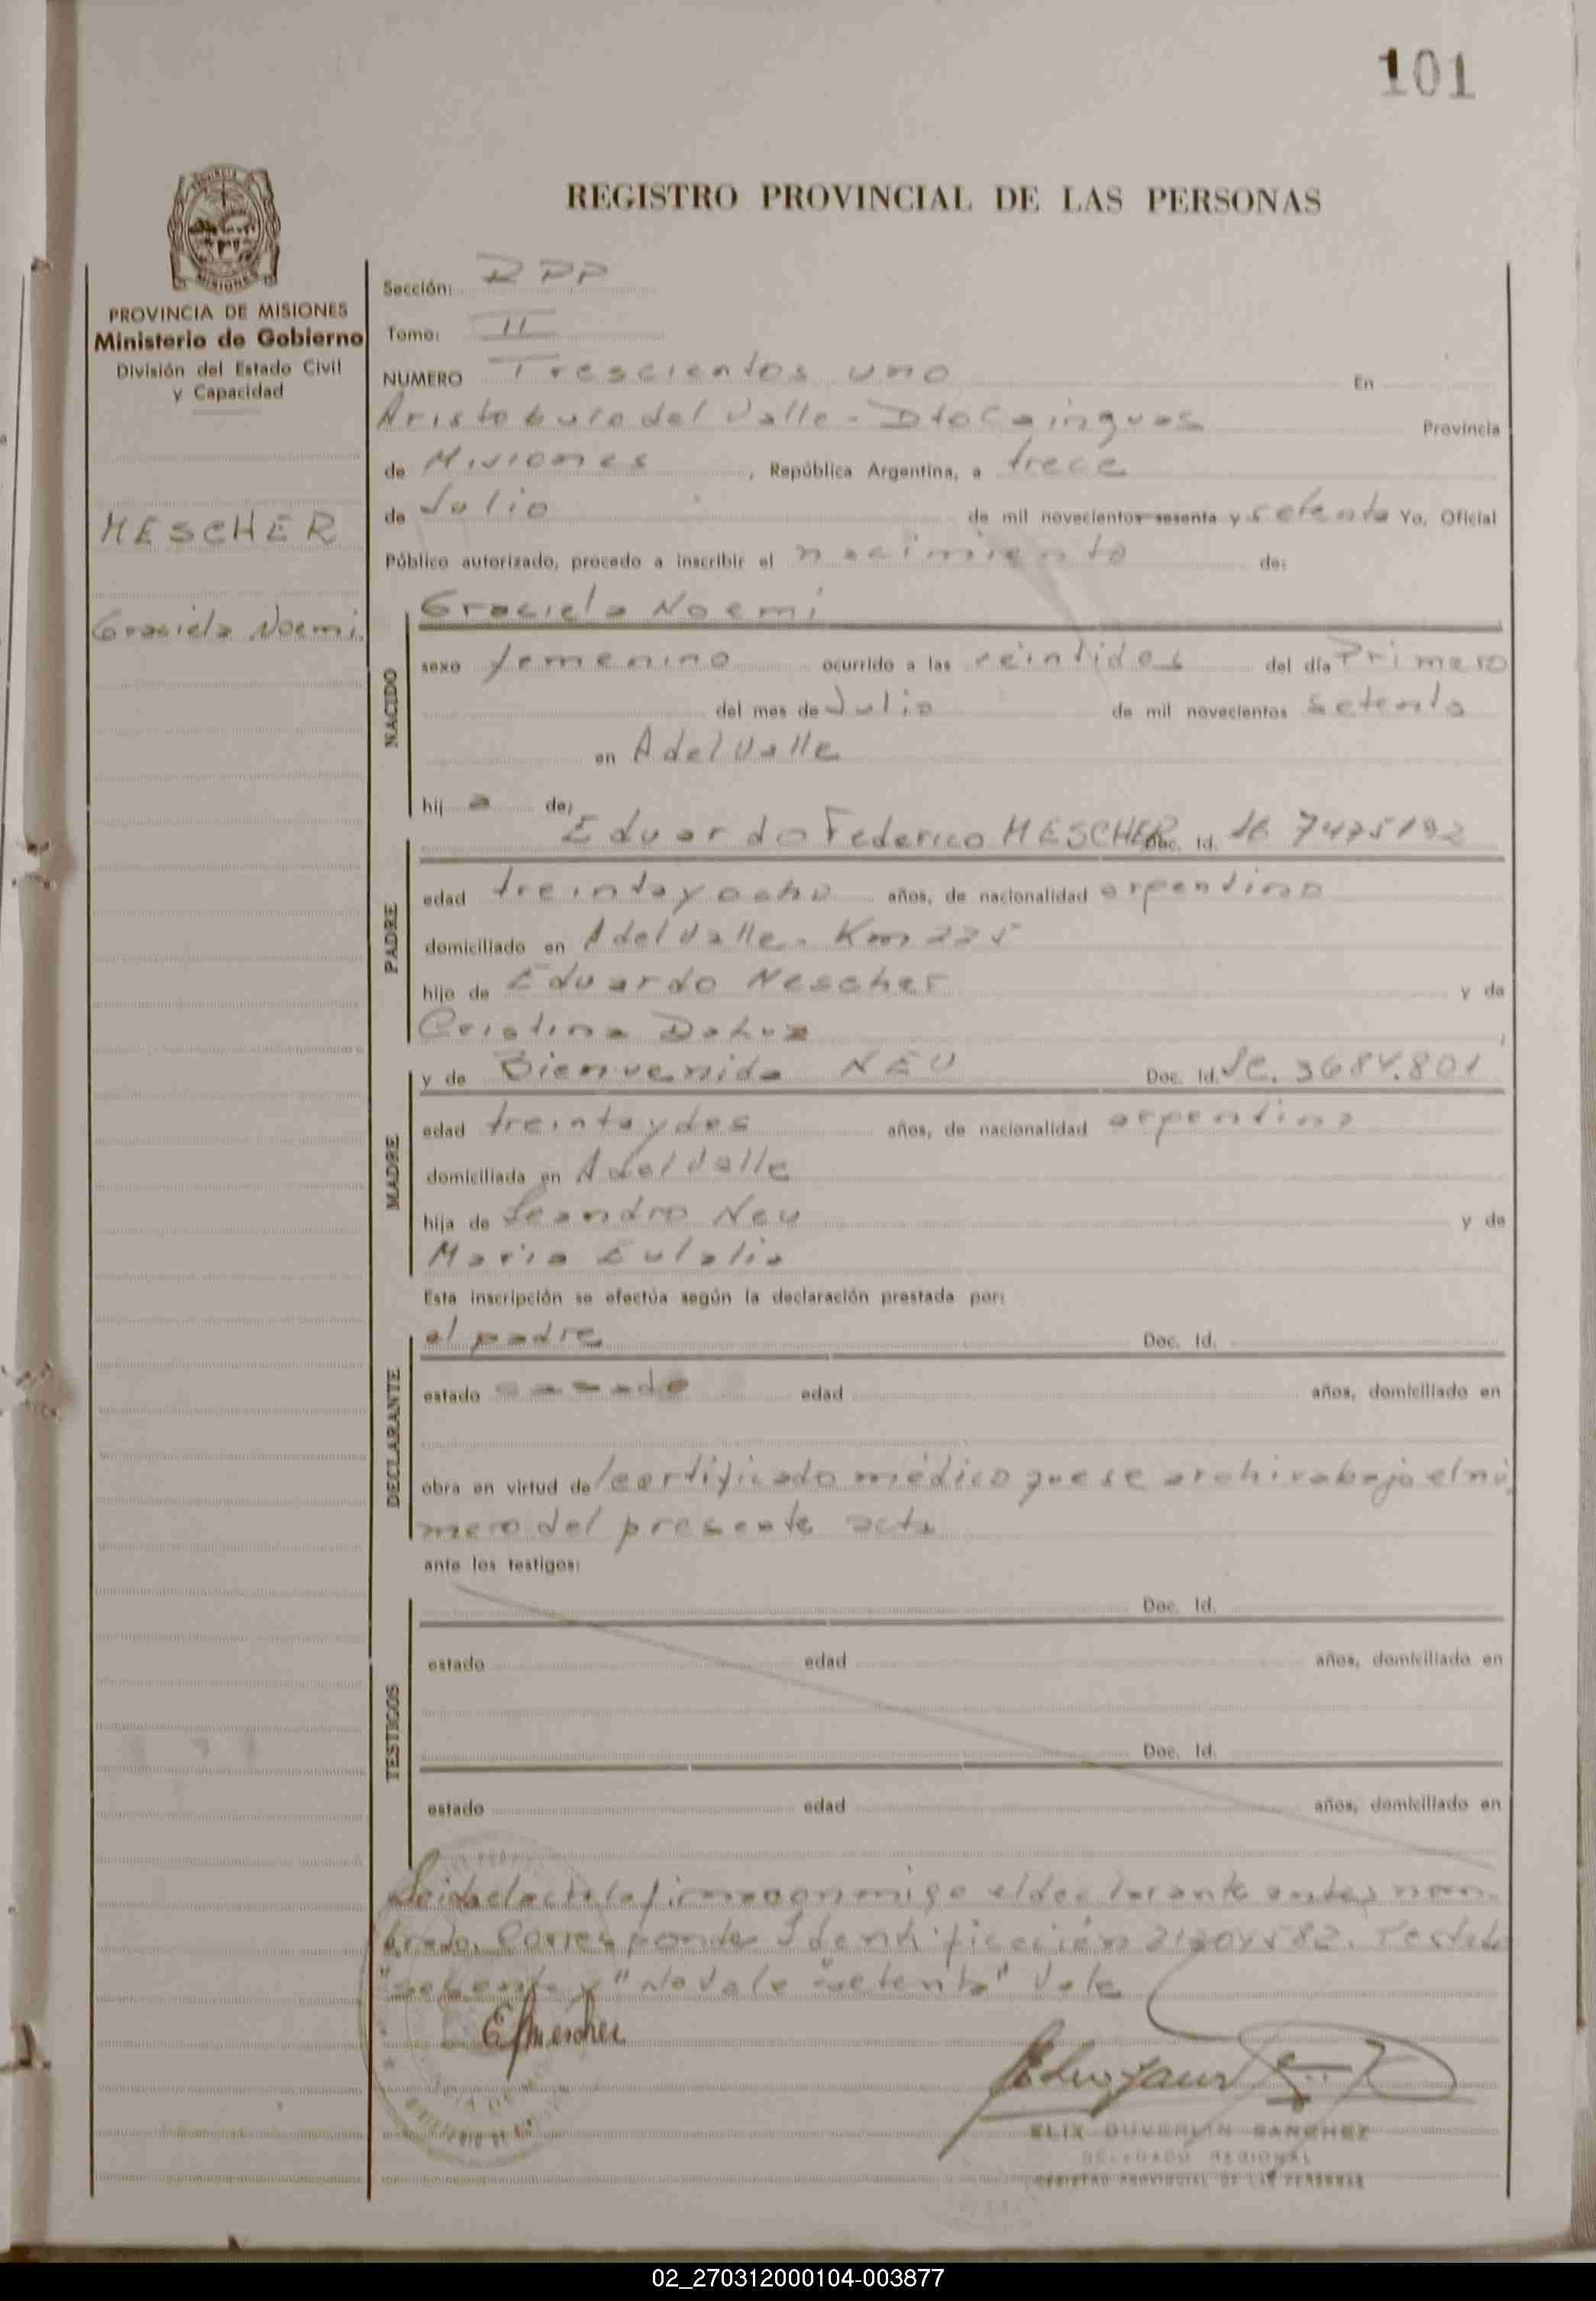 101
REGISTRO PROVINCIAL DE LAS PERSONAS
PROVINCIA DE MISIONES
Ministerio de Gobierno
División del Estado Civil
y Capacidad
MESCHER
Graciela Noemi
Sección: DPP
Tomo: II
NUMERO Trescientos uno En
Aristobulo del Valle - Dto Cainguas Provincia
de Misiones, República Argentina, a trece
de Julio de mil novecientos sesenta y setenta Yo, Oficial
Público autorizado, procedo a inscribir el nacimiento de:
NACIDO
Graciela Noemi
sexo femenino ocurrido a las veintidos del día Primero
del mes de Julio de mil novecientos setenta
en A del Valle
hij a de:
PADRE
Eduardo Federico MESCHER Doc. Id. 7475192
edad treinta y ocho años, de nacionalidad argentino
domiciliado en A del Valle - Km 225
hijo de Eduardo Mescher y de
Cristina
MADRE
y de Bienvenida NEU Doc. Id. LC. 3684.801
edad treinta y dos años, de nacionalidad argentina
domiciliada en A del Valle
hija de Leandro Neu y de
Maria Eulalia
Esta inscripción se efectúa según la declaración prestada por:
DECLARANTE
el padre Doc. Id.
estado casado edad años, domiciliado en
obra en virtud del certificado médico que se archiva bajo el nú
mero del presente acta
ante los testigos:
TESTIGOS
Doc. Id.
estado edad años, domiciliado en
Doc. Id.
estado edad años, domiciliado en
Leida el acta la firma conmigo el declarante antes nom-
brado. Corresponde Identificación 21304582. Testado
"sesenta y" No Vale "setenta" Vale
EFMescher
ELIX DUVERLIN SANCHEZ
DELEGADO REGIONAL
REGISTRO PROVINCIAL DE LAS PERSONAS
02_270312000104-003877